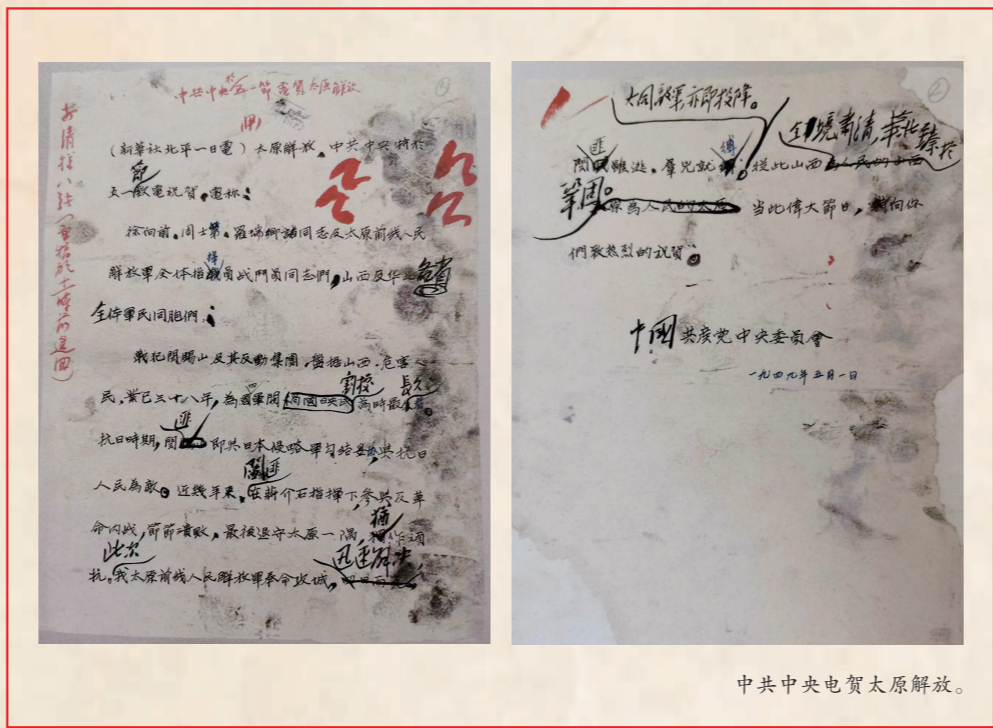 中共中央於五一節電賀太原解放
(新華社北平一日電)太原解放,中共中央特於
五一節致電祝賀,電稱:
徐向前、周士第、羅瑞卿諸同志及太原前线人民
解放軍全体指揮員战鬥員同志們,山西及华北各省
全体軍民同胞們:
戰犯閻錫山及其反動集團,盤据山西,危害人
民,業已三十八年,為國軍閥割據為時最長久。
抗日時期,閻匪即與日本侵略軍勾结,與抗日
人民為敵。近幾年来,閻匪在蔣介石指揮下,參與反革
命内战,節節潰敗,最後退守太原一隅,猶作頑
抗。此次我太原前线人民解放軍奉命攻城,迅速解决
大同敵軍亦即投降。
閻匪雖逃,羣兇就縛。從此山西全境肅清,華北臻於
鞏固。當此偉大節日,特向你
們致热烈的祝賀。
中國共産党中央委員會
一九四九年五月一日
中共中央电贺太原解放。